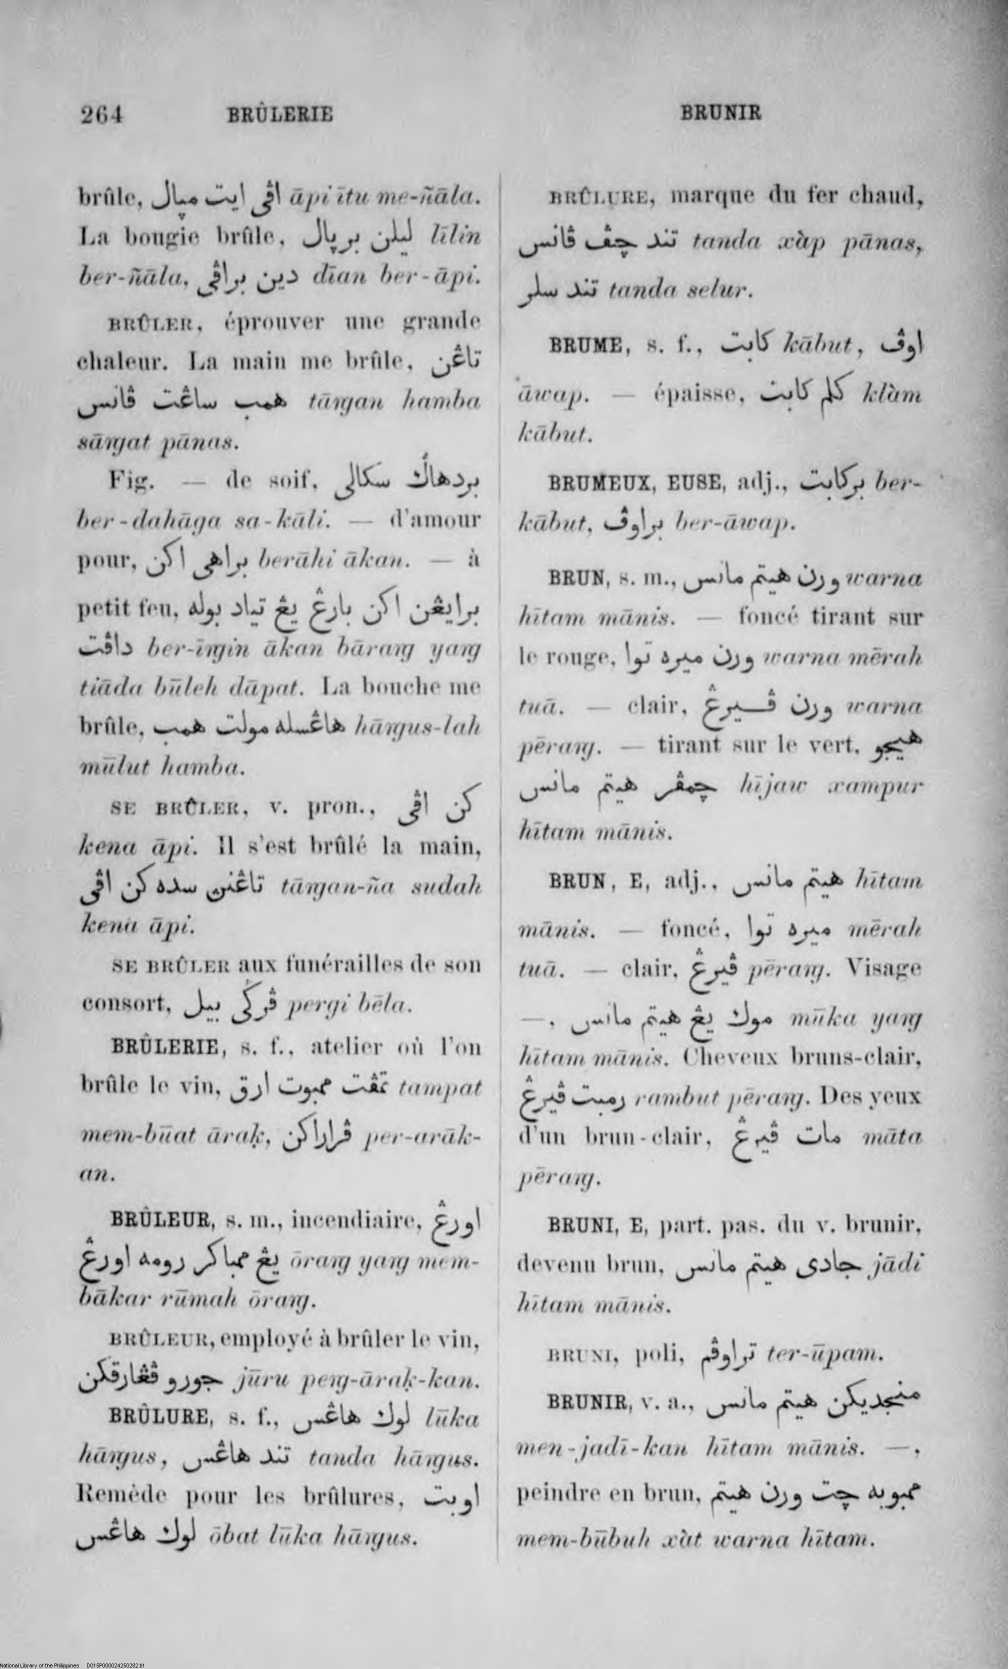 264 BRÛLERIE BRUNIR
brûle, اڤي ايت مڽال āpi ītu me-ñāla.
La bougie brûle, ليلن برڽال līlin
ber-ñāla, دين براڤي dīan ber-āpi.
BRÛLER, éprouver une grande
chaleur. La main me brûle, تاڠن
همب ساڠت ڤانس tāṅgan hamba
sāṅgat pānas.
Fig. — de soif, بردهاݢ سكالي
ber-dahāga sa-kāli. — d'amour
pour, براهي اكن berāhi ākan. — à
petit feu, برايڠن اكن بارڠ يڠ تياد بوله
داڤت ber-īṅgin ākan bāraṅg yaṅg
tiāda būleh dāpat. La bouche me
brûle, هاڠسله مولت همب hāṅgus-lah
mūlut hamba.
SE BRÛLER, v. pron., كن اڤي
kena āpi. Il s'est brûlé la main,
تاڠنڽ سده كن اڤي tāṅgan-ña sudah
kena āpi.
SE BRÛLER aux funérailles de son
consort, ڤرݢي بيل pergi bēla.
BRÛLERIE, s. f., atelier où l'on
brûle le vin, تمڤت ممبوت ارق tampat
mem-būat āraḳ, ڤراراكن per-arāk-
an.
BRÛLEUR, s. m., incendiaire, اورڠ
يڠ ممباكر رومه اورڠ ōraṅg yaṅg mem-
bākar rūmah ōraṅg.
BRÛLEUR, employé à brûler le vin,
جورو ڤڠارقكن jūru peṅg-āraḳ-kan.
BRÛLURE, s. f., لوك هاڠس lūka
hāṅgus, تند هاڠس tanda hāṅgus.
Remède pour les brûlures, اوبت
لوك هاڠس ōbat lūka hāṅgus.
BRÛLURE, marque du fer chaud,
تند چڤ ڤانس tanda xàp pānas,
تند سلر tanda selur.
BRUME, s. f., كابت kābut, اوڤ
āwap. — épaisse, كلم كابت klàm
kābut.
BRUMEUX, EUSE, adj., بركابت ber-
kābut, براوڤ ber-āwap.
BRUN, s. m., ورن هيتم مانس warna
hītam mānis. — foncé tirant sur
le rouge, ورن ميره توا warna mērah
tuā. — clair, ورن ڤيرڠ warna
pēraṅg. — tirant sur le vert, هيجو
چمڤر هيتم مانس hījaw xampur
hītam mānis.
BRUN, E, adj., هيتم مانس hītam
mānis. — foncé, ميره توا mērah
tuā. — clair, ڤيرڠ pēraṅg. Visage
—, موك يڠ هيتم مانس mūka yaṅg
hītam mānis. Cheveux bruns-clair,
رمبت ڤيرڠ rambut pēraṅg. Des yeux
d'un brun-clair, مات ڤيرڠ māta
pēraṅg.
BRUNI, E, part. pas. du v. brunir,
devenu brun, جادي هيتم مانس jādi
hītam mānis.
BRUNI, poli, تراوڤم ter-ūpam.
BRUNIR, v. a., منجديكن هيتم مانس
men-jadī-kan hītam mānis. —,
peindre en brun, ممبوبه چت ورن هيتم
mem-būbuh xàt warna hītam.
National Library of the Philippines